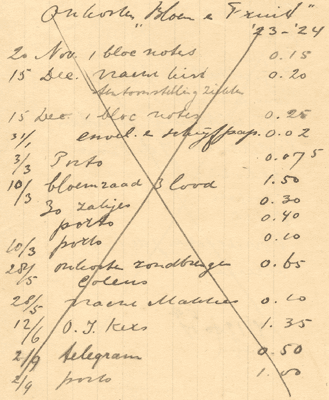 Onkosten "Bloem & Fruit"
'23-'24
20 Nov. 1 bloc notes 0.15
15 Dec. 0.20
tentoonstelling
15 Dec. 1 bloc notes 0.25
31/1 envel. & schrijfpap. 0.02
3/3 Porto 0.075
10/3 bloemzaad 1.50
30 zakjes 0.30
porto 0.40
10/3 porto 0.10
28/5 onkosten rondbrengen 0.65
Coleus
28/5 0.10
12/6 O. J. 1.35
2/9 telegram 0.50
2/9 porto 1.00